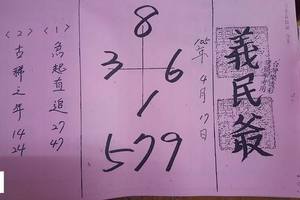 義民爺
105年4月17日
8
3 6
1
579
(1)
急起直追 27 47
(2)
古稀之年 14 24